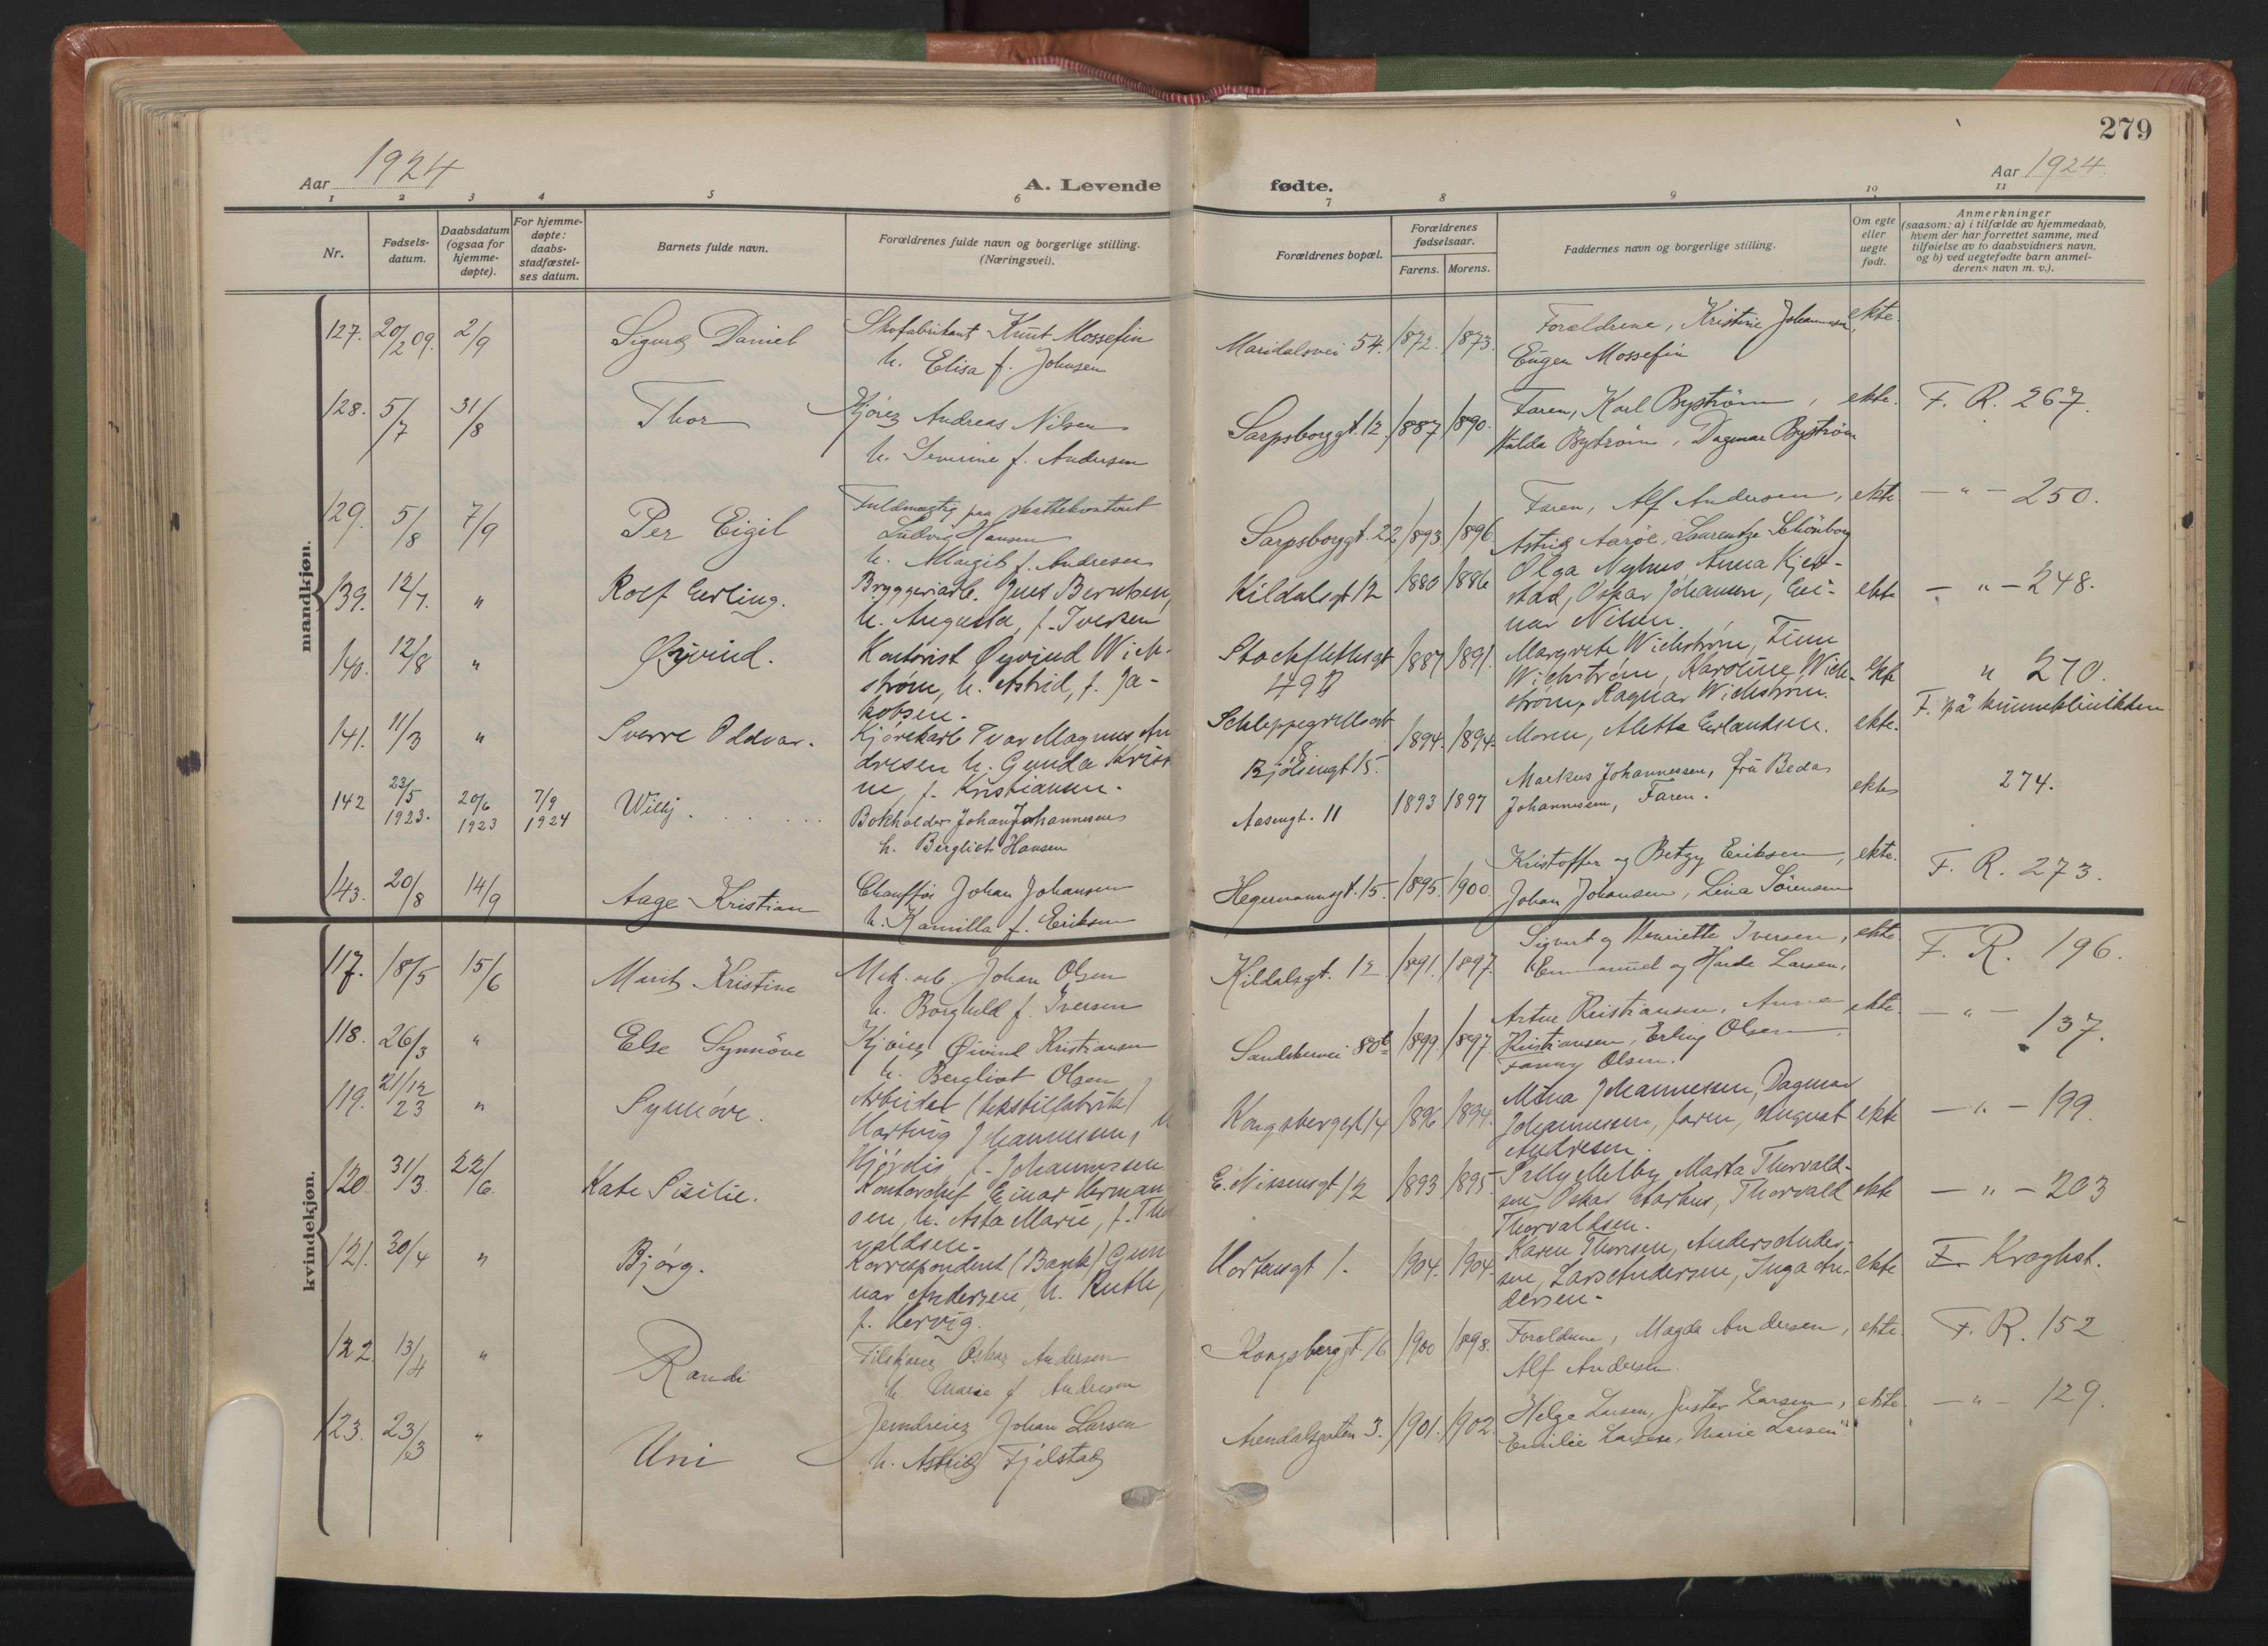 279
Aar 1924
A. Levende fødte.
Aar 1924.
1 2 3 4 5 6 7 8 9 10 11
Nr.
Fødsels-
datum.
Daabsdatum
(ogsaa for
hjemme-
døpte).
For hjemme-
døpte:
daabs-
stadfæstel-
ses datum.
Barnets fulde navn.
Forældrenes fulde navn og borgerlige stilling.
(Næringsvei).
Forældrenes bopæl.
Forældrenes
fødselsaar.
Farens. Morens.
Faddernes navn og borgerlige stilling.
Om egte
eller
uegte
født.
Anmerkninger
(saasom: a) i tilfælde av hjemmedaab,
hvem der har forrettet samme, med
tilføielse av to daabsvidners navn,
og b) ved uegtefødte barn anmel-
derens navn m. v.).
mandkjøn.
127. 20/2 09. 2/9 Sigurd Daniel
Skofabrikant Knut Mossefin
h. Elisa f. Johnsen
Maridalsvei 54. 1872. 1873.
Forældrene, Kristine Johannesen,
Eugen Mossefin
ekte.
128. 5/7 31/8 Thor
Kjører Andreas Nilsen
h. Severine f. Andersen
Sarpsborggt. 12. 1887 1890.
Faren, Karl Byström,
Hulda Byström, Dagmar Byström
ekte. F. R. 267.
129. 5/8 7/9 Per Eigil
Fuldmægtig paa skattekontoret
Ludvig Hansen
h. Margit f. Andresen
Sarpsborggt. 22 1893 1896
Faren, Alf Andersen,
Astrid Aarøe, Laurentze Schönborg
ekte — " — 250.
139. 12/7. " Rolf Erling.
Bryggeriarb. Jens Berntsen,
h. Augusta, f. Iversen
Kildalsgt 12 1880 1886
Olga Nyhus Anna Kjel-
stad, Oskar Johansen, Ei-
nar Nilsen.
ekte — " — 248.
140. 12/8 " Øyvind.
Kontorist Øyvind Wich-
strøm, h. Astrid, f. Ja-
kobsen.
Stockflethsgt
49 1887 1891.
Margrete Wichstrøm, Finn
Wichstrøm, Karoline Wich-
strøm, Ragnar Wichstrøm.
ekte " 270.
141. 11/3 " Sverre Oddvar.
Kjørekarl Ivar Magnus An-
dresen h. Gunda Krist
ne, f. Kristiansen.
Schleppegrellsgt
8.
Bjølsengt 15.
1894. 1894.
Moren, Aletta Erlandsen. ekte.
F. på kvinneklinikken
142 23/5 1923. 20/6 1923 7/9 1924 Willy.
Bokholder Johan Johannesen
h. Bergliot Hansen
Aasengt. 11 1893 1897
Markus Johannessen, fru Beda
Johannessen, Faren.
ekte 274.
143. 20/8 14/9 Aage Kristian
Chauffør Johan Johansen
h. Kamilla f. Eriksen
Hegermannsgt. 15. 1895. 1900
Kristoffer og Betzy Eriksen,
Johan Johansen, Lina Sörensen
ekte. F. R. 273.
kvindekjøn.
117. 18/5 15/6 Marit Kristine
Mek. arb. Johan Olsen
h. Borghild f. Iversen
Kildalsgt. 12 1891. 1897.
Sigurd og Henriette Iversen,
Emmanuel og Harda Larsen,
ekte. F. R. 196.
118. 26/3 " Else Synnöve
Kjører Øivind Kristiansen
h. Bergliot Olsen
Sandakervei 80b 1899. 1897.
Artur Kristiansen, Anna
Kristiansen, Erling Olsen
Fanny Olsen.
ekte. — " — 137.
119. 21/12 23 " Synnøve.
Arbeider (tekstilfabrik)
Hartvig Johannessen, h
Hjørdis, f. Johannessen
Kongsberggt 14 1896 1894.
Mina Johannessen, Dagmar
Johannessen, faren, August
Andresen.
ekte — " — 199.
120. 31/3. 22/6. Kate Sisilie.
Kontorchef Einar Herman
sen, h. Asta Marie, f. Tho
valdsen.
E. Nissensgt 12 1893 1895.
Pelly Melby, Marta Thorvald-
sen, Oskar Aarhus, Thorvald
Thorvaldsen.
ekte — " — 203
121. 30/4 " Bjørg.
Korrespondent (Bank) Gun
nar Andersen, h. Ruth,
f. Hervig.
Hortensgt 1. 1904. 1904.
Karen Thorsen, Anders Ander-
sen, Lars Andersen, Inga An-
dersen.
ekte F. Kraghst.
122. 13/4 " Randi
Filskjærer Oskar Andersen
h. Marie f. Andresen
Kongsberggt. 16 1900 1898.
Foreldrene, Magda Andersen,
Alf Andersen.
ekte. F. R. 152
123. 23/3 " Uni
Jerndreier Johan Larsen
h. Astrid Fjelstad
Arendalsgaten 3. 1901. 1902.
Helge Larsen, Gustav Larsen,
Emilie Larsen, Marie Larsen
ekte. — " — 129.